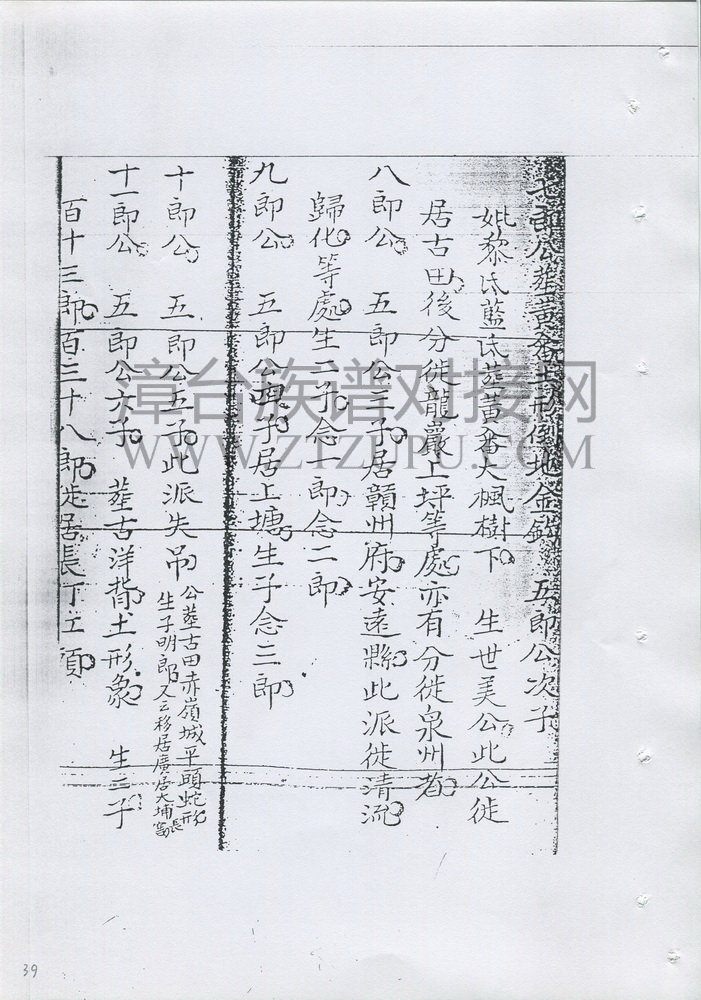 七郎公葬黃畬上形倒地金 五郎公次子
妣黎氏藍氏葬黃畬大楓樹下 生世美公此公徙
居古田後分徙龍巖上坪等處亦有分徙泉州者
八郎公 五郎公三子居贛州府安遠縣此派徙清流
歸化等處生二子念一郎念二郎
九郎公 五郎公四子居上塘生子念三郎
十郎公 五郎公五子此派失吊 公葬古田赤嶺城平頭蛇形
生子明郎又云移居廣居大埔
十一郎公 五郎公六子 葬古洋背土形象 生三子
百十三郎百三十八郎徙居長丁
漳台族谱对接网
WWW.ZTZUPU.COM
39